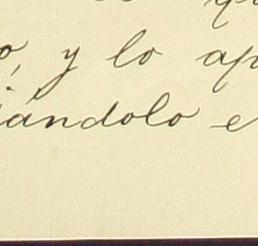 o, y lo ap
iándolo e